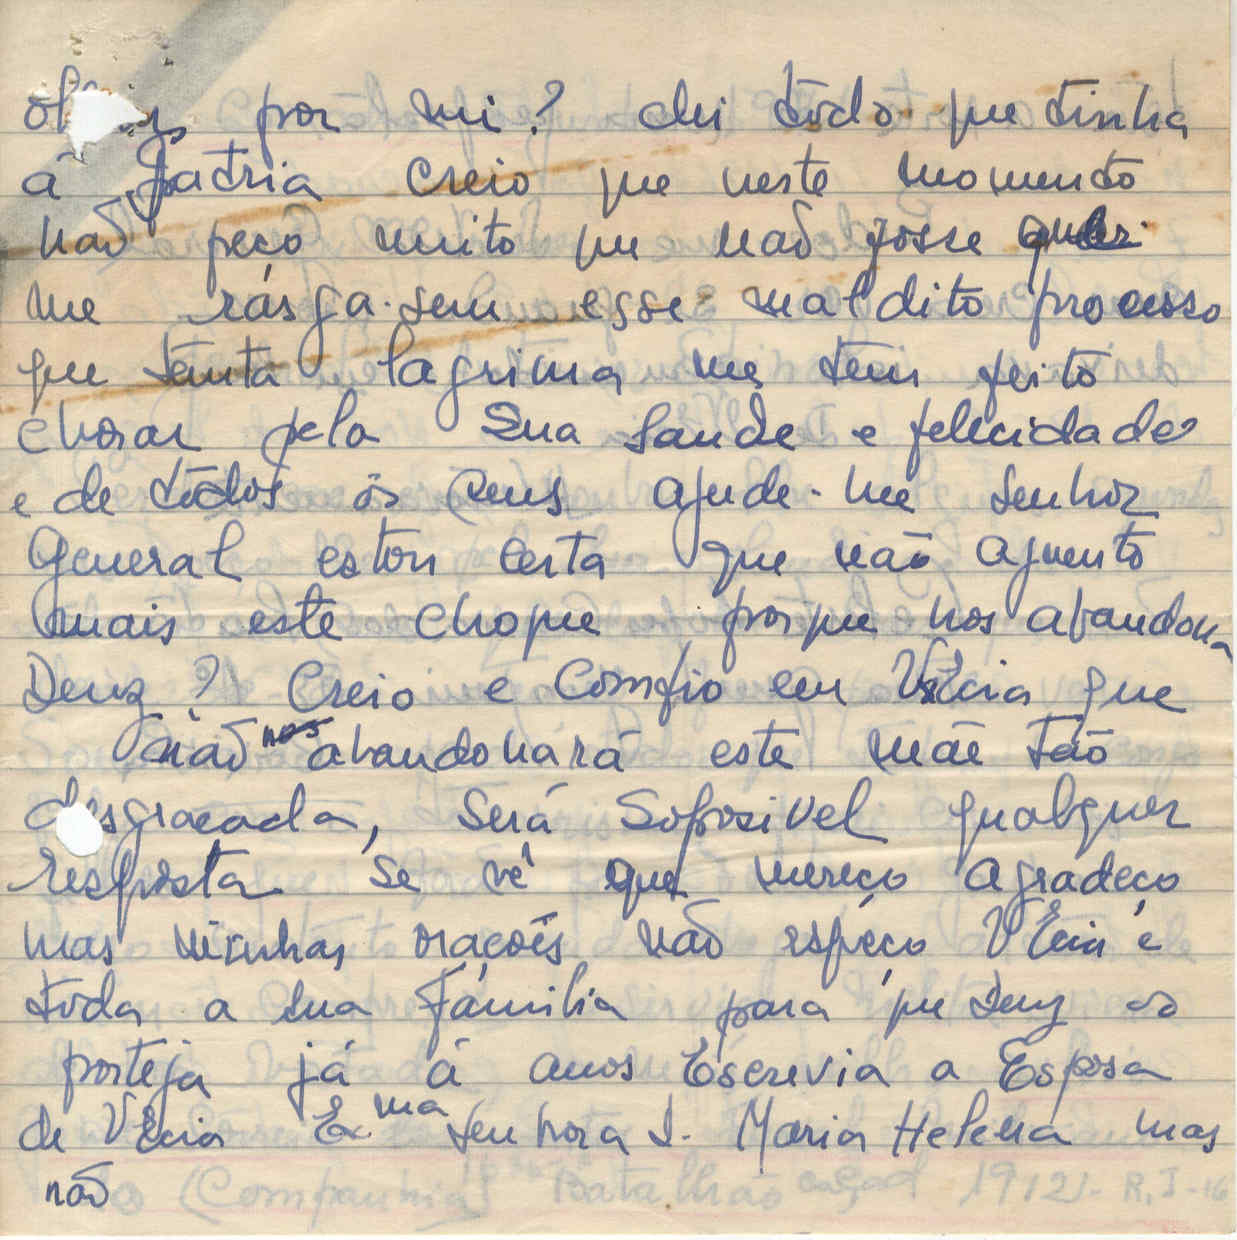 por mi? dei todo que tinha
á patria creio que neste momento
não peço muito que não fosse
me rásga-sem esse maldito processo
que tanta lagrima me tem feito
chorar pela Sua saude e felicidade
e de todos os ceus ajude-me senhor
General estou certa que não aguento
mais este choque porque nos abandona
Deuz? Creio e comfio em VEcia que
não nos abandonará este mãe tão
desgraçada, Será Soposivel qualquer
resposta se vê que mereço agradeço
mas minhas orações não espéço VEcia e
toda a sua Familia para que Deuz os
porteja já á anos Escrevia a Esposa
de VEcia Ex.ma Senhora D. Maria Helena mas
não
(Companhia) Batalhão caçad 1912 - R.I-16